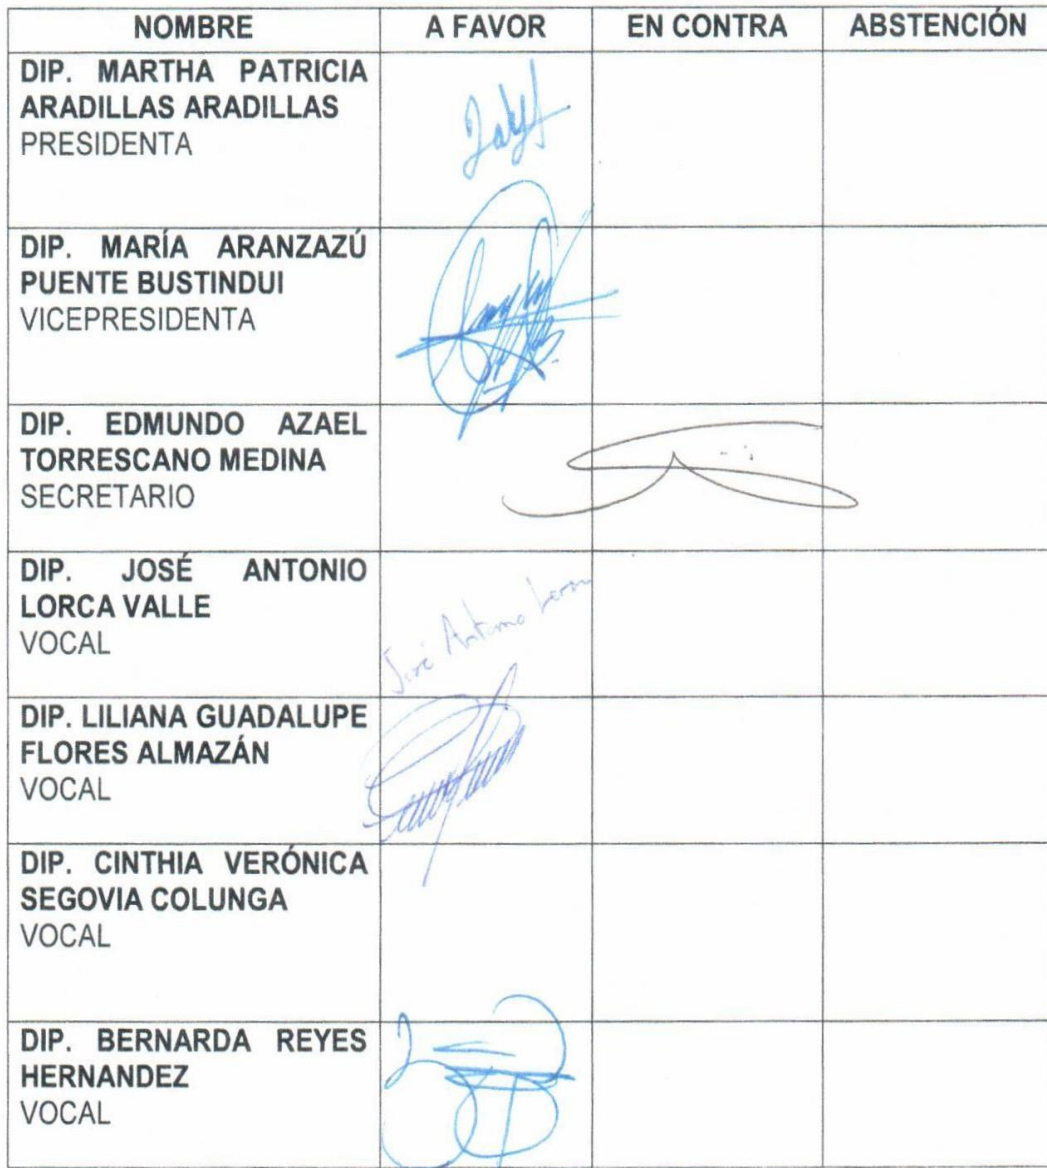 NOMBRE A FAVOR EN CONTRA ABSTENCIÓN
DIP. MARTHA PATRICIA
ARADILLAS ARADILLAS
PRESIDENTA
DIP. MARÍA ARANZAZÚ
PUENTE BUSTINDUI
VICEPRESIDENTA
DIP. EDMUNDO AZAEL
TORRESCANO MEDINA
SECRETARIO
DIP. JOSÉ ANTONIO
LORCA VALLE
VOCAL
José Antonio
DIP. LILIANA GUADALUPE
FLORES ALMAZÁN
VOCAL
DIP. CINTHIA VERÓNICA
SEGOVIA COLUNGA
VOCAL
DIP. BERNARDA REYES
HERNANDEZ
VOCAL